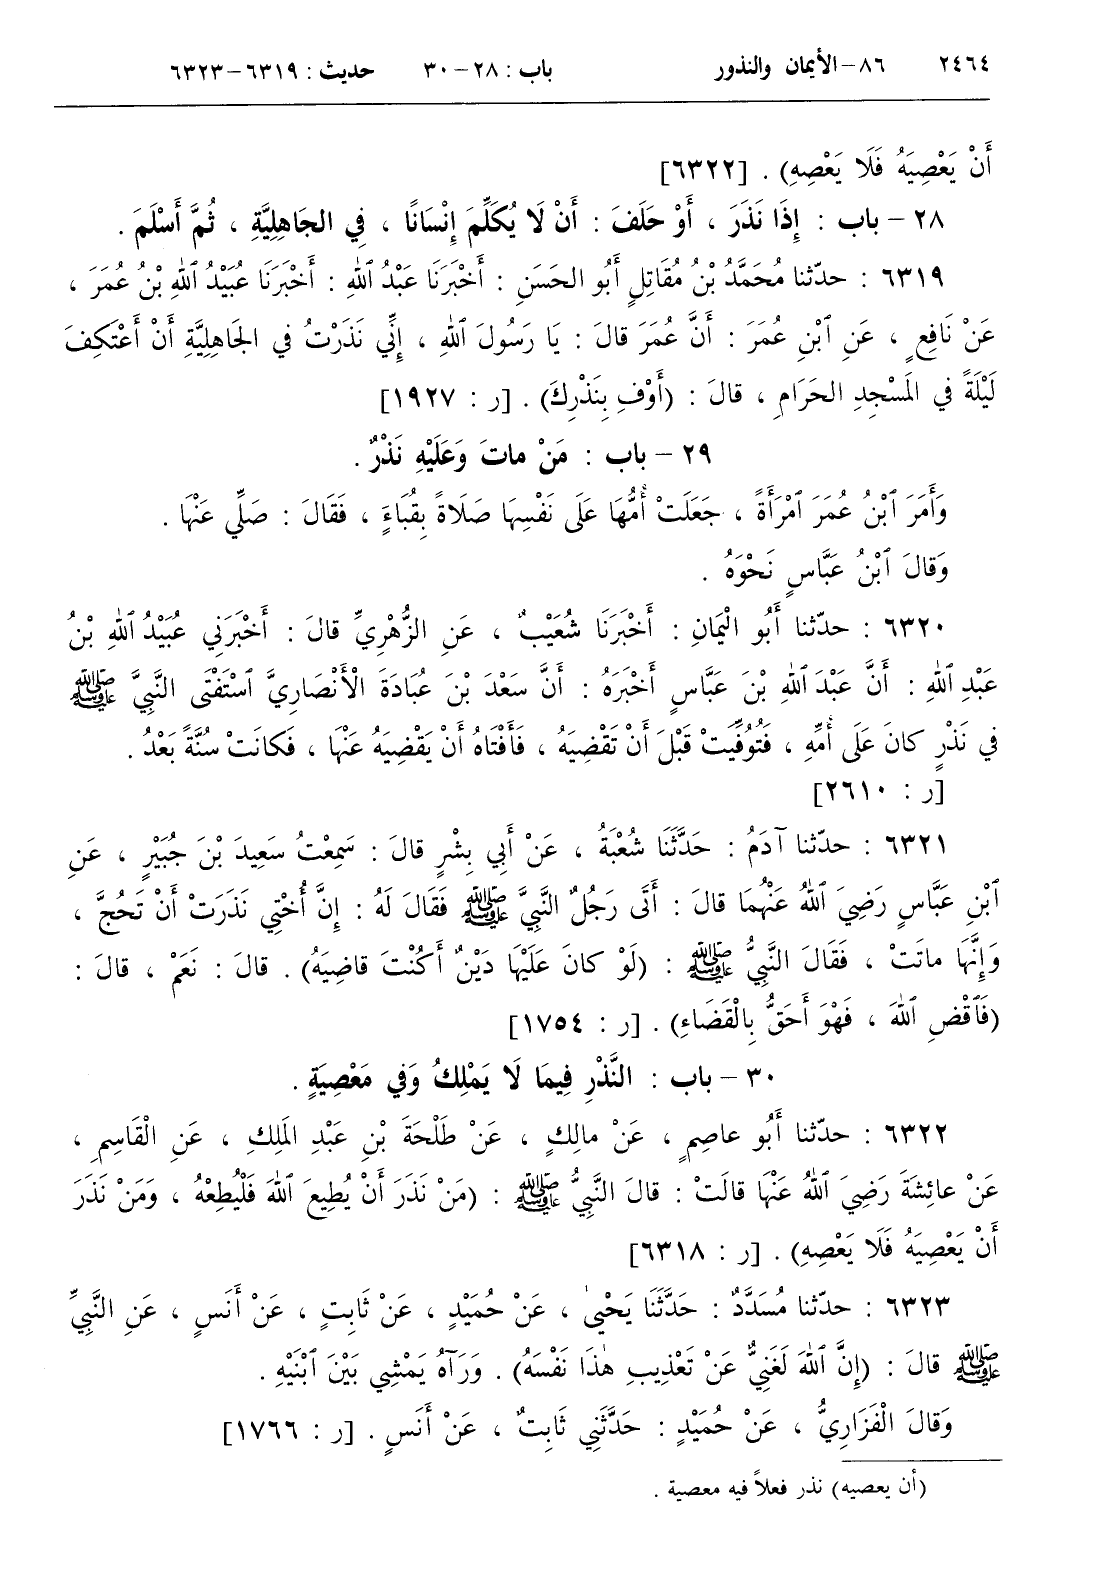 ٢٤٦٤ ٨٦-الأيمان والنذور باب : ٢٨-٣٠ حديث : ٦٣١٩-٦٣٢٣
أَنْ يَعْصِيَهُ فَلَا يَعْصِهِ) . [٦٣٢٢]
٢٨ – باب : إِذَا نَذَرَ ، أَوْ حَلَفَ : أَنْ لَا يُكَلِّمَ إِنْسَانًا ، فِي الجَاهِلِيَّةِ ، ثُمَّ أَسْلَمَ .
٦٣١٩ : حدّثنا مُحَمَّدُ بْنُ مُقَاتِلٍ أَبُو الحَسَنِ : أَخْبَرَنَا عَبْدُ ٱللهِ : أَخْبَرَنَا عُبَيْدُ ٱللهِ بْنُ عُمَرَ ،
عَنْ نَافِعٍ ، عَنِ ٱبْنِ عُمَرَ : أَنَّ عُمَرَ قالَ : يَا رَسُولَ ٱللهِ ، إِنِّي نَذَرْتُ فِي الجَاهِلِيَّةِ أَنْ أَعْتَكِفَ
لَيْلَةً فِي المَسْجِدِ الحَرَامِ ، قالَ : (أَوْفِ بِنَذْرِكَ) . [ر : ١٩٢٧]
٢٩ – باب : مَنْ ماتَ وَعَلَيْهِ نَذْرٌ .
وَأَمَرَ ٱبْنُ عُمَرَ ٱمْرَأَةً ، جَعَلَتْ أُمُّهَا عَلَى نَفْسِهَا صَلَاةً بِقُبَاءٍ ، فَقَالَ : صَلِّي عَنْهَا .
وَقالَ ٱبْنُ عَبَّاسٍ نَحْوَهُ .
٦٣٢٠ : حدّثنا أَبُو الْيَمَانِ : أَخْبَرَنَا شُعَيْبٌ ، عَنِ الزُّهْرِيِّ قالَ : أَخْبَرَنِي عُبَيْدُ ٱللهِ بْنُ
عَبْدِ ٱللهِ : أَنَّ عَبْدَ ٱللهِ بْنَ عَبَّاسٍ أَخْبَرَهُ : أَنَّ سَعْدَ بْنَ عُبَادَةَ الْأَنْصَارِيَّ ٱسْتَفْتَى النَّبِيَّ ﷺ
فِي نَذْرٍ كانَ عَلَى أُمِّهِ ، فَتُوُفِّيَتْ قَبْلَ أَنْ تَقْضِيَهُ ، فَأَفْتَاهُ أَنْ يَقْضِيَهُ عَنْهَا ، فَكانَتْ سُنَّةً بَعْدُ .
[ر : ٢٦١٠]
٦٣٢١ : حدّثنا آدَمُ : حَدَّثَنَا شُعْبَةُ ، عَنْ أَبِي بِشْرٍ قالَ : سَمِعْتُ سَعِيدَ بْنَ جُبَيْرٍ ، عَنِ
ٱبْنِ عَبَّاسٍ رَضِيَ ٱللهُ عَنْهُمَا قالَ : أَتَى رَجُلٌ النَّبِيَّ ﷺ فَقَالَ لَهُ : إِنَّ أُخْتِي نَذَرَتْ أَنْ تَحُجَّ ،
وَإِنَّهَا ماتَتْ ، فَقَالَ النَّبِيُّ ﷺ : (لَوْ كانَ عَلَيْهَا دَيْنٌ أَكُنْتَ قاضِيَهُ) . قالَ : نَعَمْ ، قالَ :
(فَٱقْضِ ٱللهَ ، فَهْوَ أَحَقُّ بِالْقَضَاءِ) . [ر : ١٧٥٤]
٣٠ – باب : النَّذْرِ فِيمَا لَا يَمْلِكُ وَفِي مَعْصِيَةٍ .
٦٣٢٢ : حدّثنا أَبُو عاصِمٍ ، عَنْ مالِكٍ ، عَنْ طَلْحَةَ بْنِ عَبْدِ المَلِكِ ، عَنِ الْقَاسِمِ ،
عَنْ عائِشَةَ رَضِيَ ٱللهُ عَنْهَا قالَتْ : قالَ النَّبِيُّ ﷺ : (مَنْ نَذَرَ أَنْ يُطِيعَ ٱللهَ فَلْيُطِعْهُ ، وَمَنْ نَذَرَ
أَنْ يَعْصِيَهُ فَلَا يَعْصِهِ) . [ر : ٦٣١٨]
٦٣٢٣ : حدّثنا مُسَدَّدٌ : حَدَّثَنَا يَحْيىٰ ، عَنْ حُمَيْدٍ ، عَنْ ثَابِتٍ ، عَنْ أَنَسٍ ، عَنِ النَّبِيِّ
ﷺ قالَ : (إِنَّ ٱللهَ لَغَنِيٌّ عَنْ تَعْذِيبِ هٰذَا نَفْسَهُ) . وَرَآهُ يَمْشِي بَيْنَ ٱبْنَيْهِ .
وَقالَ الْفَزَارِيُّ ، عَنْ حُمَيْدٍ : حَدَّثَنِي ثَابِتٌ ، عَنْ أَنَسٍ . [ر : ١٧٦٦]
(أن يعصيه) نذر فعلاً فيه معصية .